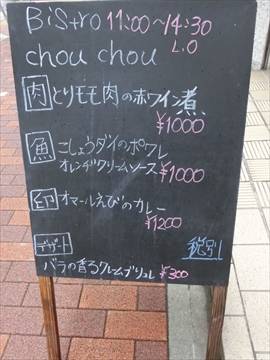 Bistro 11:00~14:30
L.O
chou chou
肉 とりモモ肉のホワイン煮
¥1000
魚 こしょうダイのポワレ
オレンヂクリームソース ¥1000
オマールえびのカレー
¥1200
デザート 税別
バラの香るクレームブリュレ ¥300